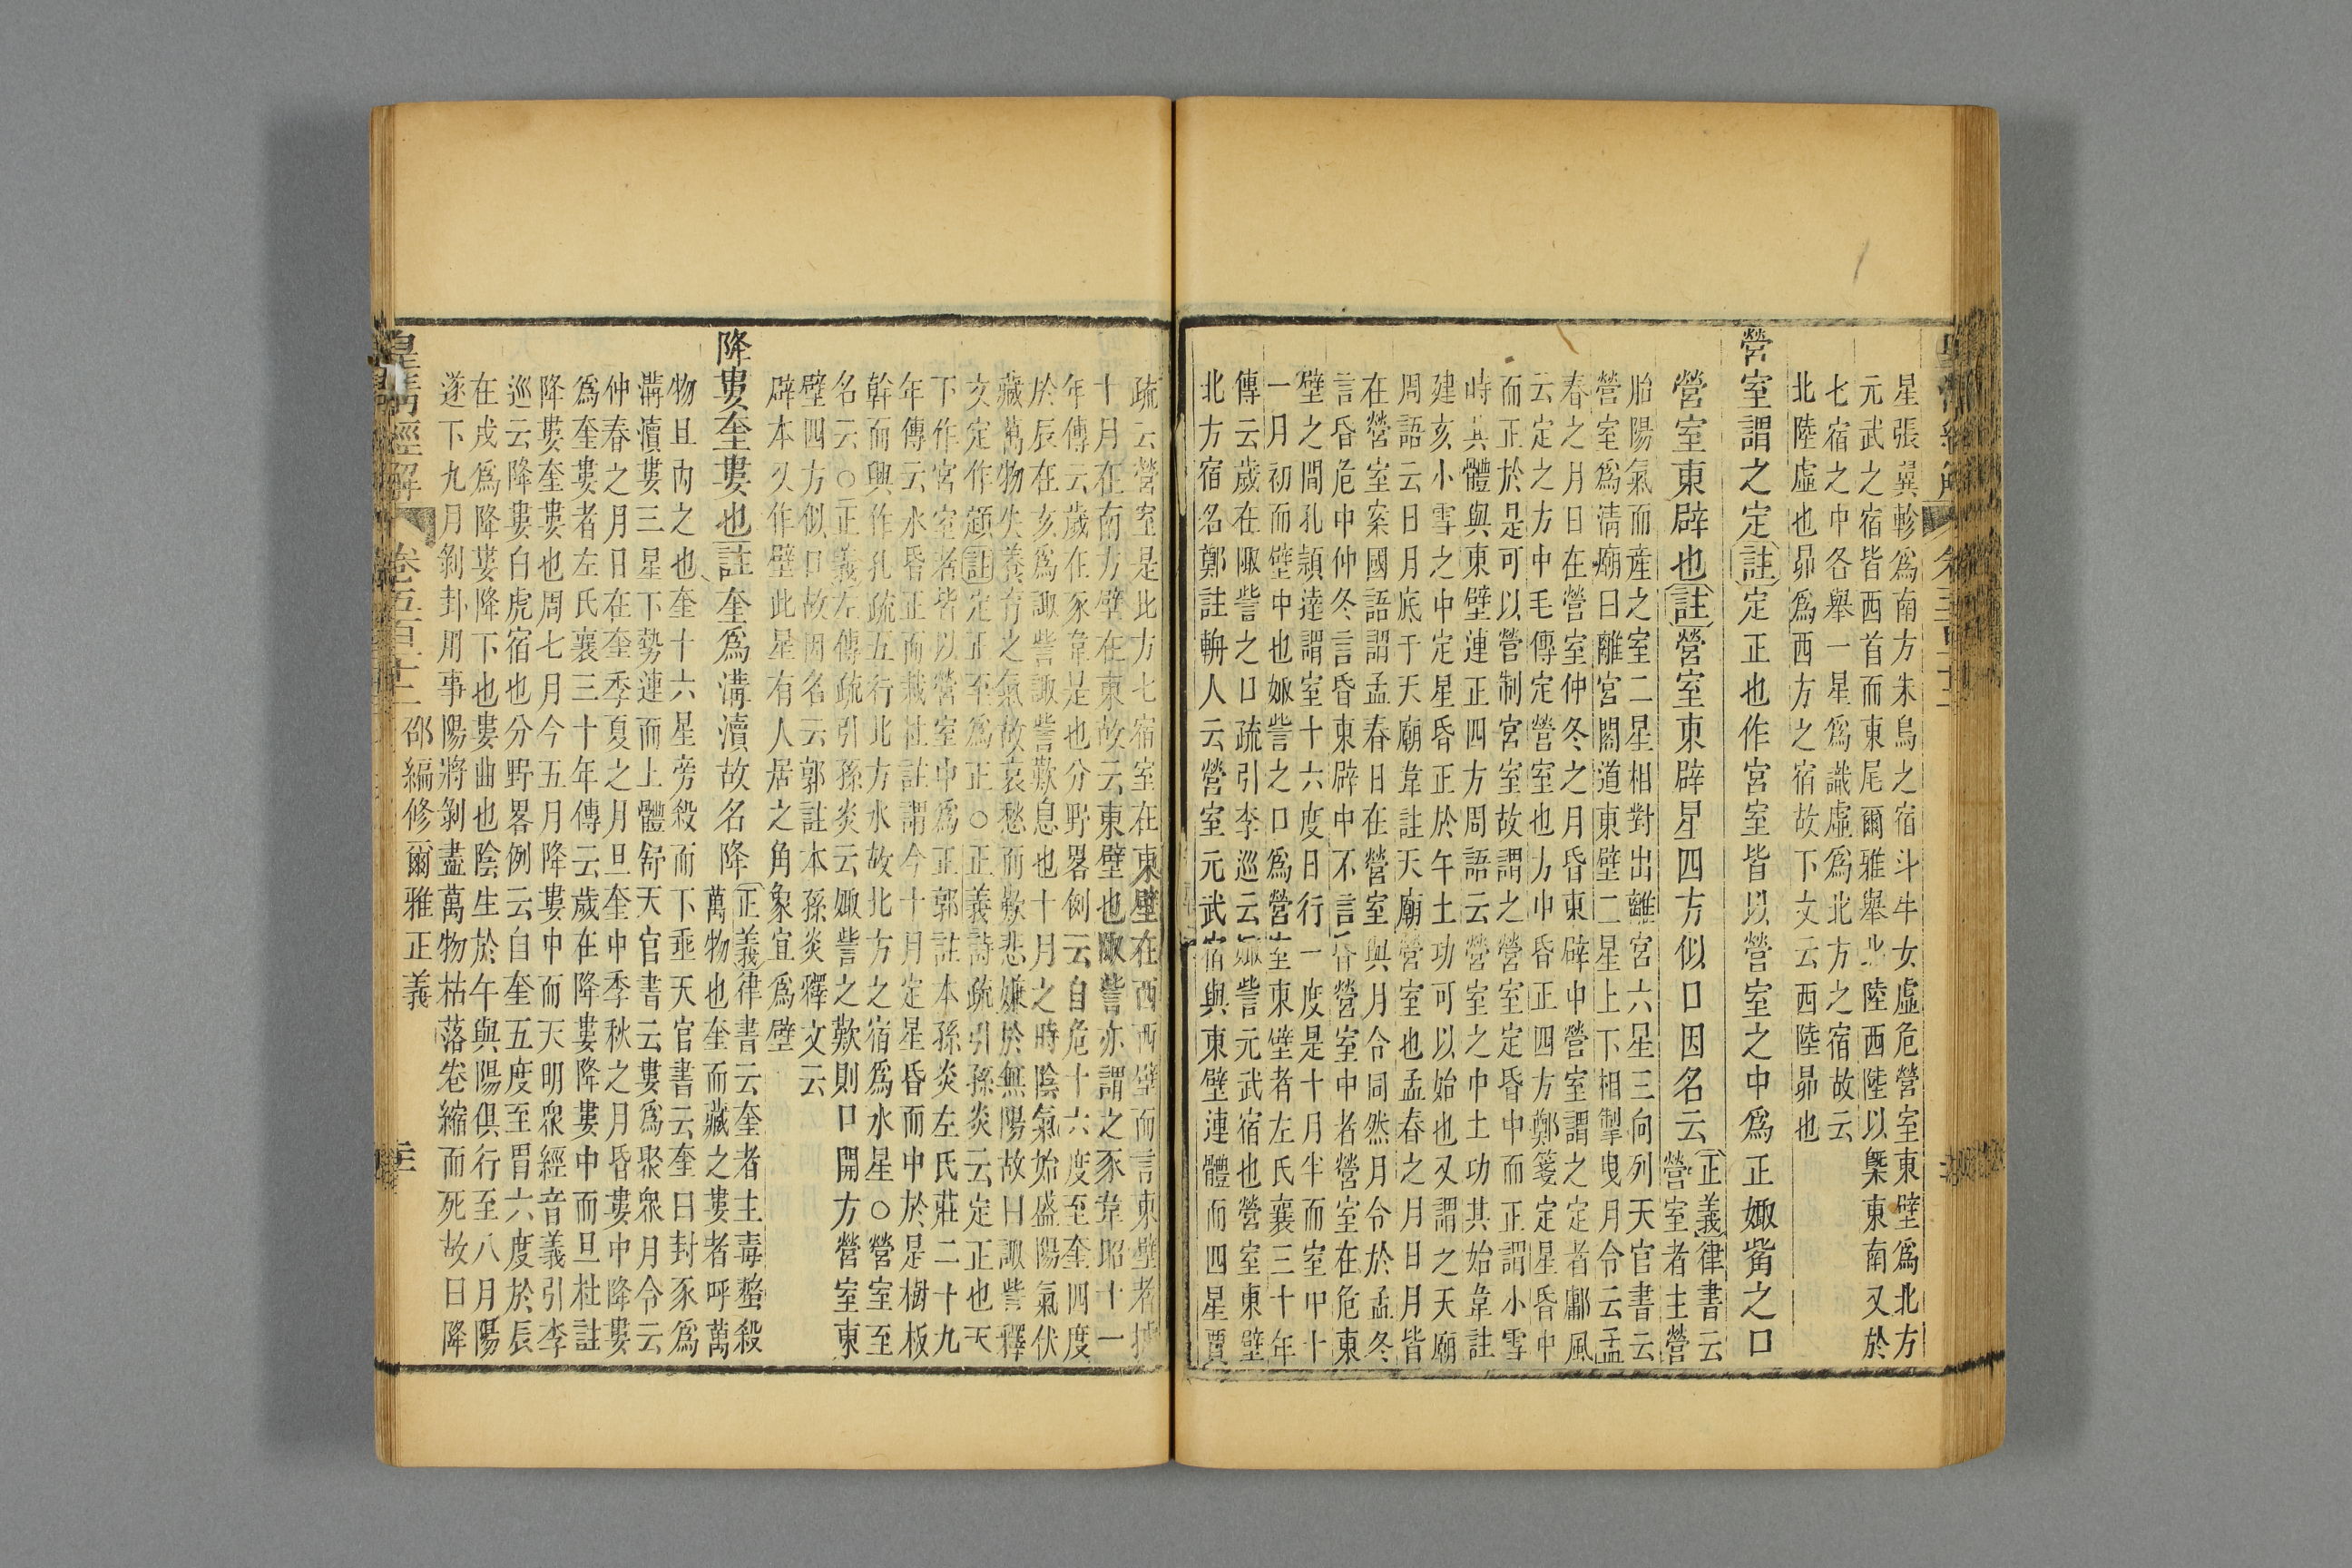 星張翼軫為南方朱鳥之宿斗牛女虛危營室東壁為北方
元武之宿皆西首而東尾爾雅舉北陸西陸以槩東南又於
七宿之中各舉一星為識虛為北方之宿故云
北陸虛也昴為西方之宿故下文云西陸昴也
營室謂之定註定正也作宮室皆以營室之中為正娵觜之口
營室東辟也註營室東辟星四方似口因名云
正義律書云
營室者主營
胎陽氣而産之室二星相對出離宮六星三向列天官書云
營室為清廟曰離宮閣道東壁二星上下相掣曳月令云孟
春之月日在營室仲冬之月昏東辟中營室謂之定者鄘風
云定之方中毛傳定營室也方中昏正四方鄭箋定星昏中
而正於是可以營制宮室故謂之營室定昏中而正謂小雪
時其體與東壁連正四方周語云營室之中土功其始韋註
建亥小雪之中定星昏正於午土功可以始也又謂之天廟
周語云日月底于天廟韋註天廟營室也孟春之月日月皆
在營室案國語謂孟春日在營室與月令同然月令於孟冬
言昏危中仲冬言昏東辟中不言昏營室中者營室在危東
壁之間孔頴達謂室十六度日行一度是十月半而室中十
一月初而壁中也娵訾之口為營室東壁者左氏襄三十年
傳云歲在娵訾之口疏引李巡云娵訾元武宿也營室東壁
北方宿名鄭註輈人云營室元武宿與東壁連體而四星賈
疏云營室是北方七宿室在東壁在西西壁而言東壁者據
十月在南方壁在東故云東壁也娵訾亦謂之豕韋昭十一
年傳云歲在豕韋是也分野畧例云自危十六度至奎四度
於辰在亥為諏訾諏訾歎息也十月之時陰氣始盛陽氣伏
藏萬物失養育之氣故哀愁而歎悲嫌於無陽故曰諏訾釋
文定作顁註定正至為正○正義詩疏引孫炎云定正也天
下作宮室者皆以營室中為正郭註本孫炎左氏莊二十九
年傳云水昏正而栽杜註謂今十月定星昏而中於是樹板
幹而興作孔疏五行北方水故北方之宿為水星○營室至
名云○正義左傳疏引孫炎云娵訾之歎則口開方營室東
壁四方似口故因名云郭註本孫炎釋文云
辟本又作壁此星有人居之角象宜為壁
降婁奎婁也註奎為溝瀆故名降
正義律書云奎者主毒螫殺
萬物也奎而藏之婁者呼萬
物且內之也奎十六星旁殺而下垂天官書云奎曰封豕為
溝瀆婁三星下勢連而上體舒天官書云婁為聚衆月令云
仲春之月日在奎季夏之月旦奎中季秋之月昏婁中降婁
為奎婁者左氏襄三十年傳云歲在降婁降婁中而旦杜註
降婁奎婁也周七月今五月降婁中而天明衆經音義引李
巡云降婁白虎宿也分野畧例云自奎五度至胃六度於辰
在戌為降婁降下也婁曲也陰生於午與陽俱行至八月陽
遂下九月剝卦用事陽將剝盡萬物枯落卷縮而死故曰降
皇清經解　卷五百十二　邵編修爾雅正義